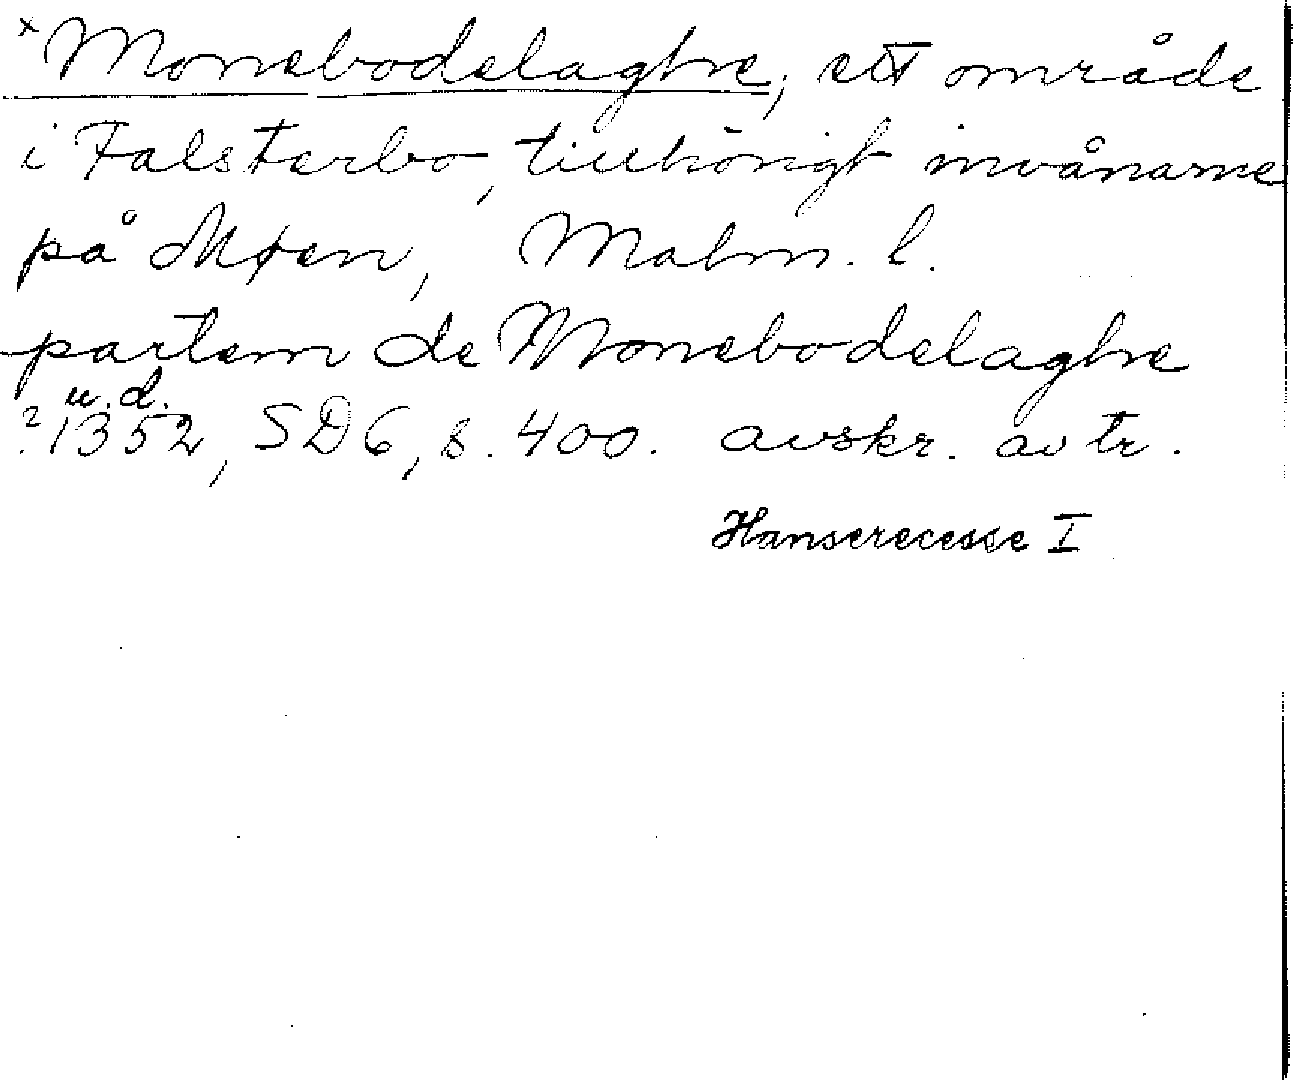 *Monebodelaghe, ett område
i Falsterbo, tillhörigt invånarne
på Møen, Malm. l.
partem de Monebodelaghe
u.d.
?1352, SD6, s. 400. avskr. av tr.
Hanserecesse I